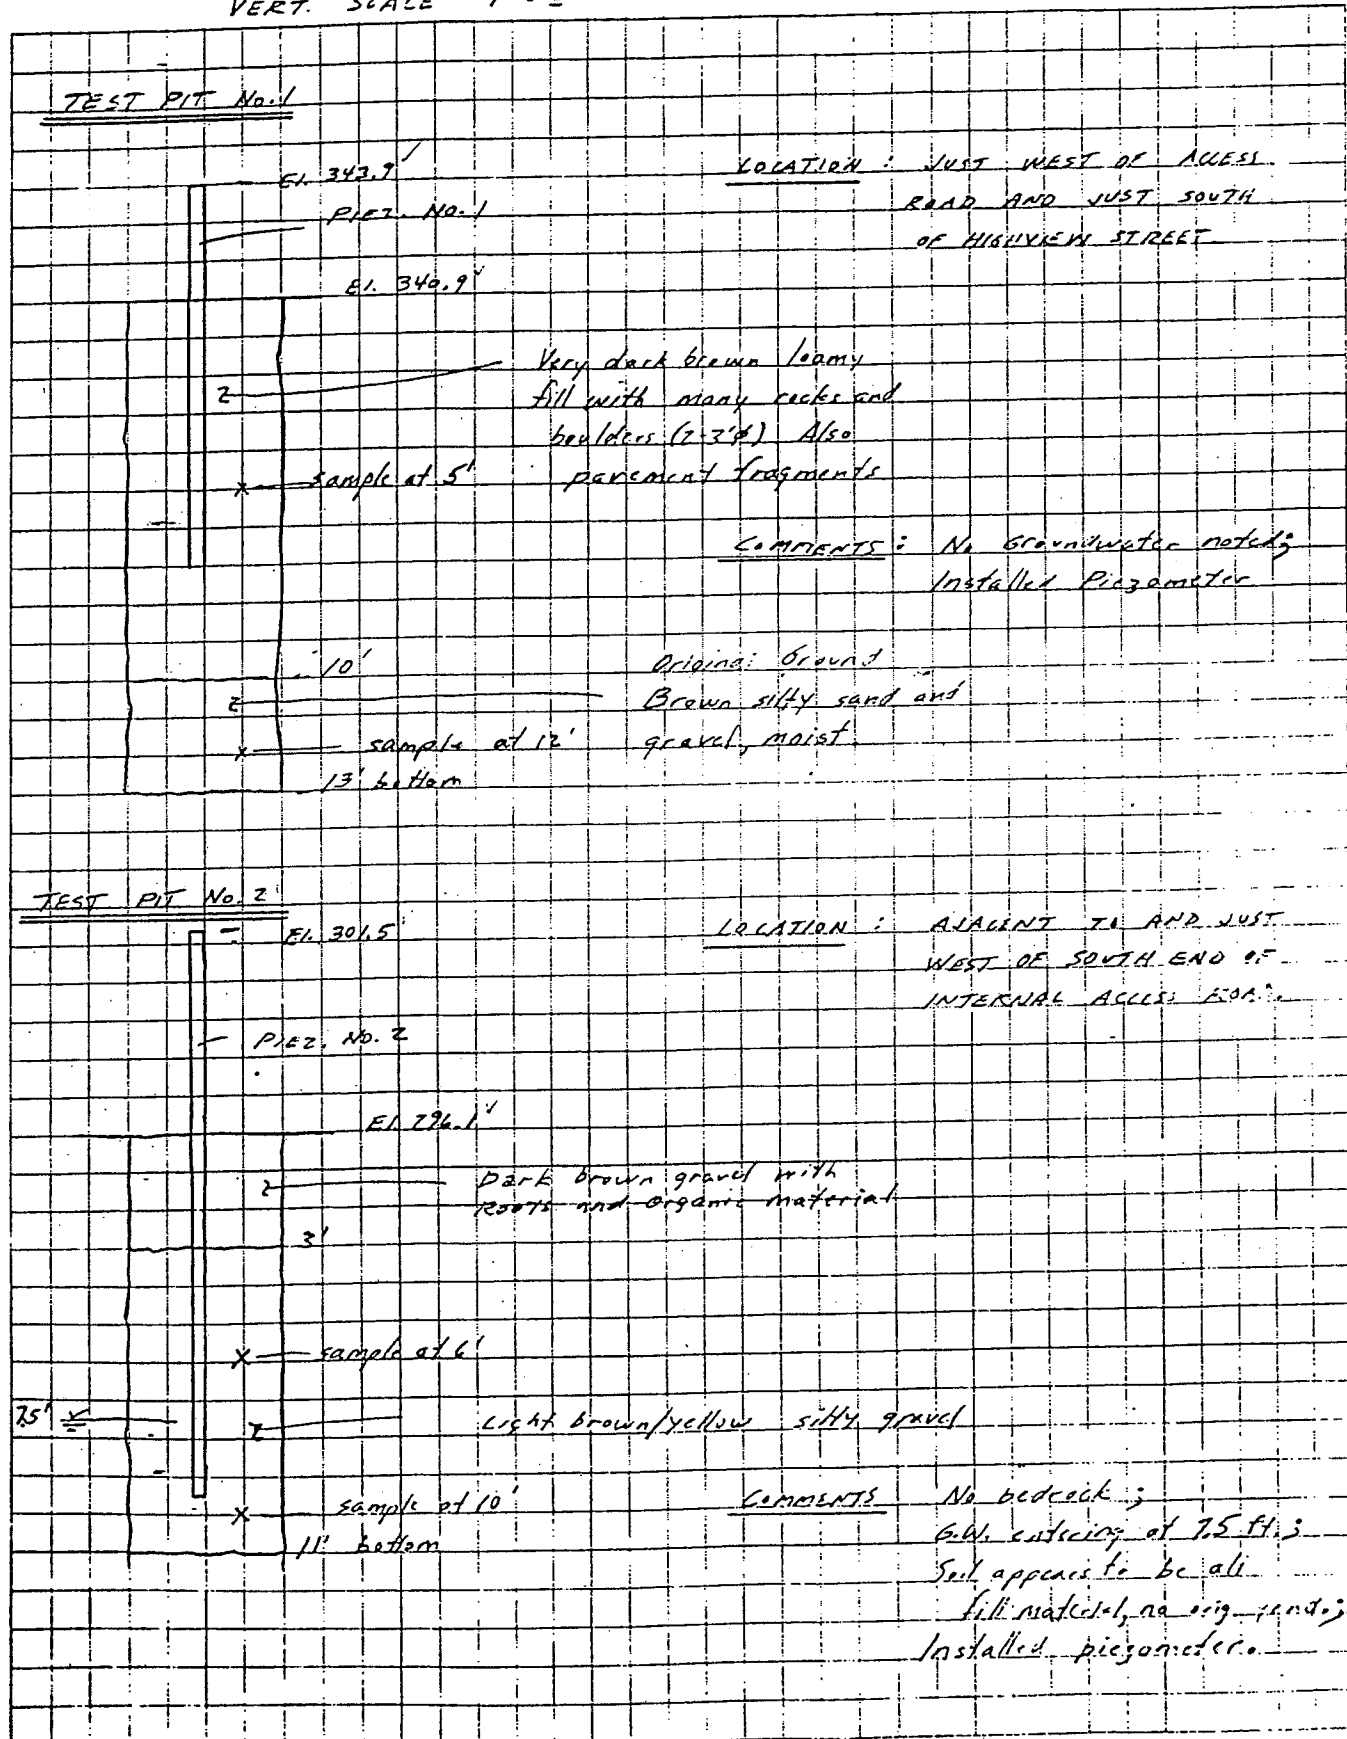 VERT. SCALE
TEST PIT No. 1
El. 343.9'
PIEZ. No. 1
LOCATION : JUST WEST OF ACCESS
ROAD AND JUST SOUTH
OF HIGHVIEW STREET
El. 340.9'
Very dark brown loamy
fill with many rocks and
boulders (2-3'ø) Also
pavement fragments
sample at 5'
COMMENTS : No Groundwater noted;
Installed Piezometer
10'
Original Ground
Brown silty sand and
gravel, moist
sample at 12'
13' bottom
TEST PIT No. 2
El. 301.5
LOCATION : AJACENT TO AND JUST
WEST OF SOUTH END OF
INTERNAL ACCESS ROAD.
PIEZ. NO. 2
El. 296.1'
Dark brown gravel with
Roots and Organic material
3'
sample at 6'
7.5'
Light brown/yellow silty gravel
sample at 10'
11' bottom
COMMENTS No bedrock ;
G.W. entering at 7.5 ft.;
Soil appears to be all
fill material, no orig.
Installed piezometer.